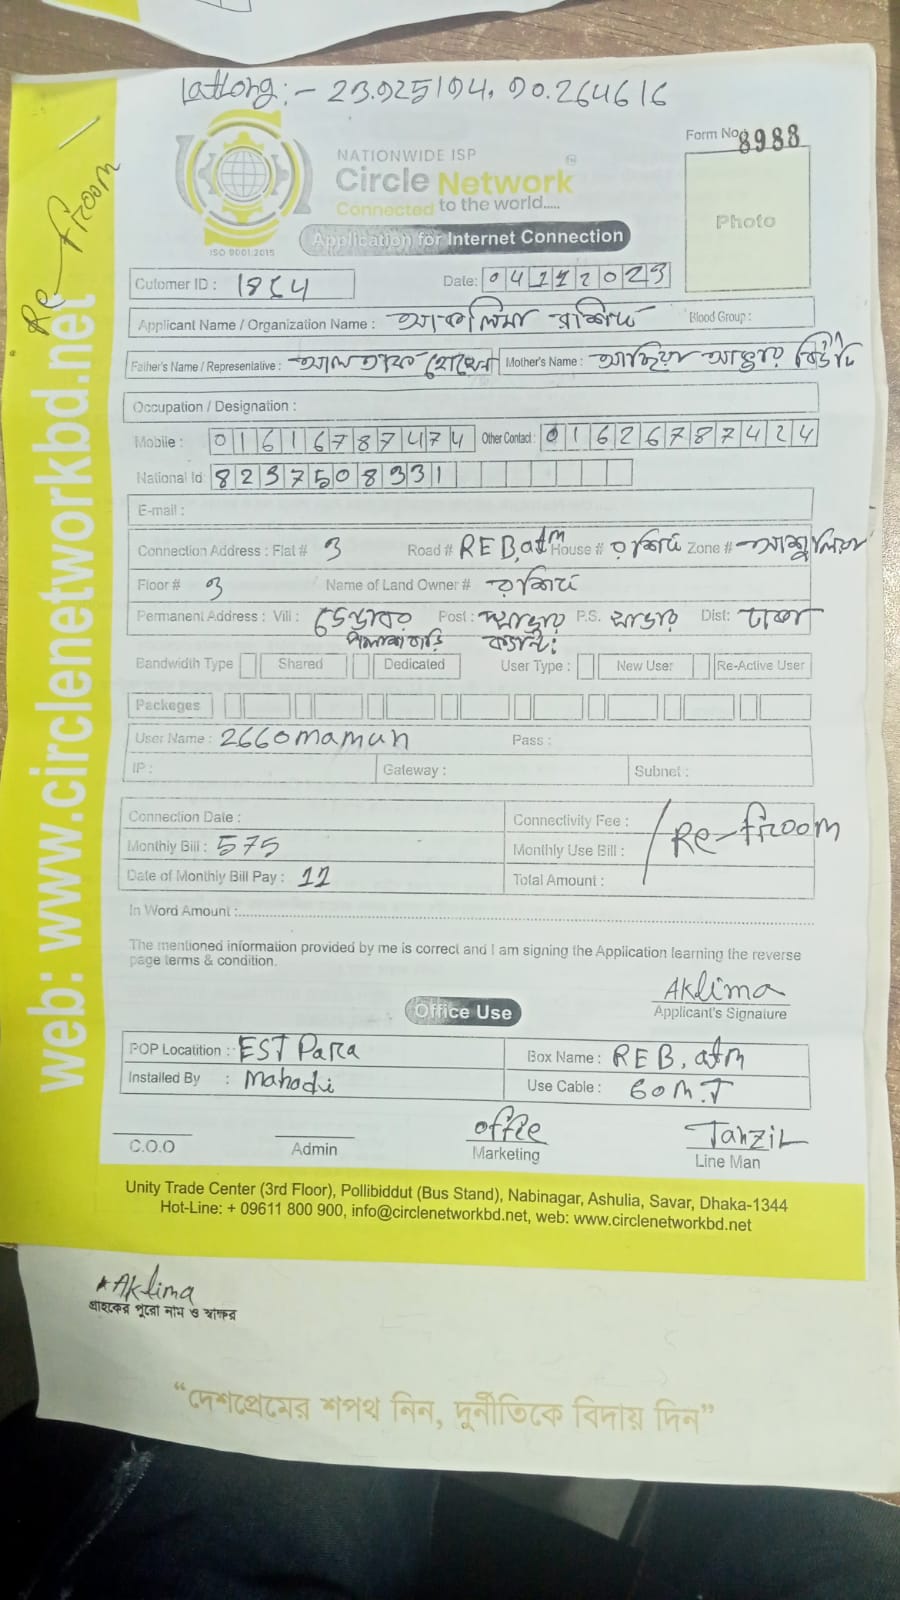 Latlong:- 23.925194, 90.264616
Form No. 8988
NATIONWIDE ISP
Circle Network
Connected to the world.....
ISO 9001:2015
Photo
Application for Internet Connection
Re-firoom
Cutomer ID : 1854
Date: 04122023
Applicant Name / Organization Name : আকলিমা রশিদ Blood Group :
Father's Name / Representative : আলতাফ হোসেন Mother's Name : আছিয়া আক্তার বিউটি
Occupation / Designation :
Mobile : 01616787474 Other Contact : 01626787424
National Id 8237508331
E-mail :
Connection Address : Flat # 3 Road # REB, atm House # রশিদ Zone # আশুলিয়া
Floor # 3 Name of Land Owner # রশিদ
Permanent Address : Vill : ডেন্ডাবর Post : সাভার P.S. সাভার Dist: ঢাকা
পলাশবাড়ি
Bandwidth Type Shared Dedicated User Type : New User Re-Active User
Packeges
User Name : 2660mamun Pass :
IP : Gateway : Subnet :
Connection Date : Connectivity Fee :
Monthly Bill : 575 Monthly Use Bill : Re-firoom
Date of Monthly Bill Pay : 12 Total Amount :
In Word Amount :
The mentioned information provided by me is correct and I am signing the Application learning the reverse
page terms & condition.
Aklima
Applicant's Signature
Office Use
POP Locatition : EST Para Box Name : REB, atm
Installed By : Mahodi Use Cable : 60 M.T
offie Tanzil
C.O.O Admin Marketing Line Man
Unity Trade Center (3rd Floor), Pollibiddut (Bus Stand), Nabinagar, Ashulia, Savar, Dhaka-1344
Hot-Line: + 09611 800 900, info@circlenetworkbd.net, web: www.circlenetworkbd.net
web: www.circlenetworkbd.net
Aklima
গ্রাহকের পুরো নাম ও স্বাক্ষর
“দেশপ্রেমের শপথ নিন, দুর্নীতিকে বিদায় দিন”